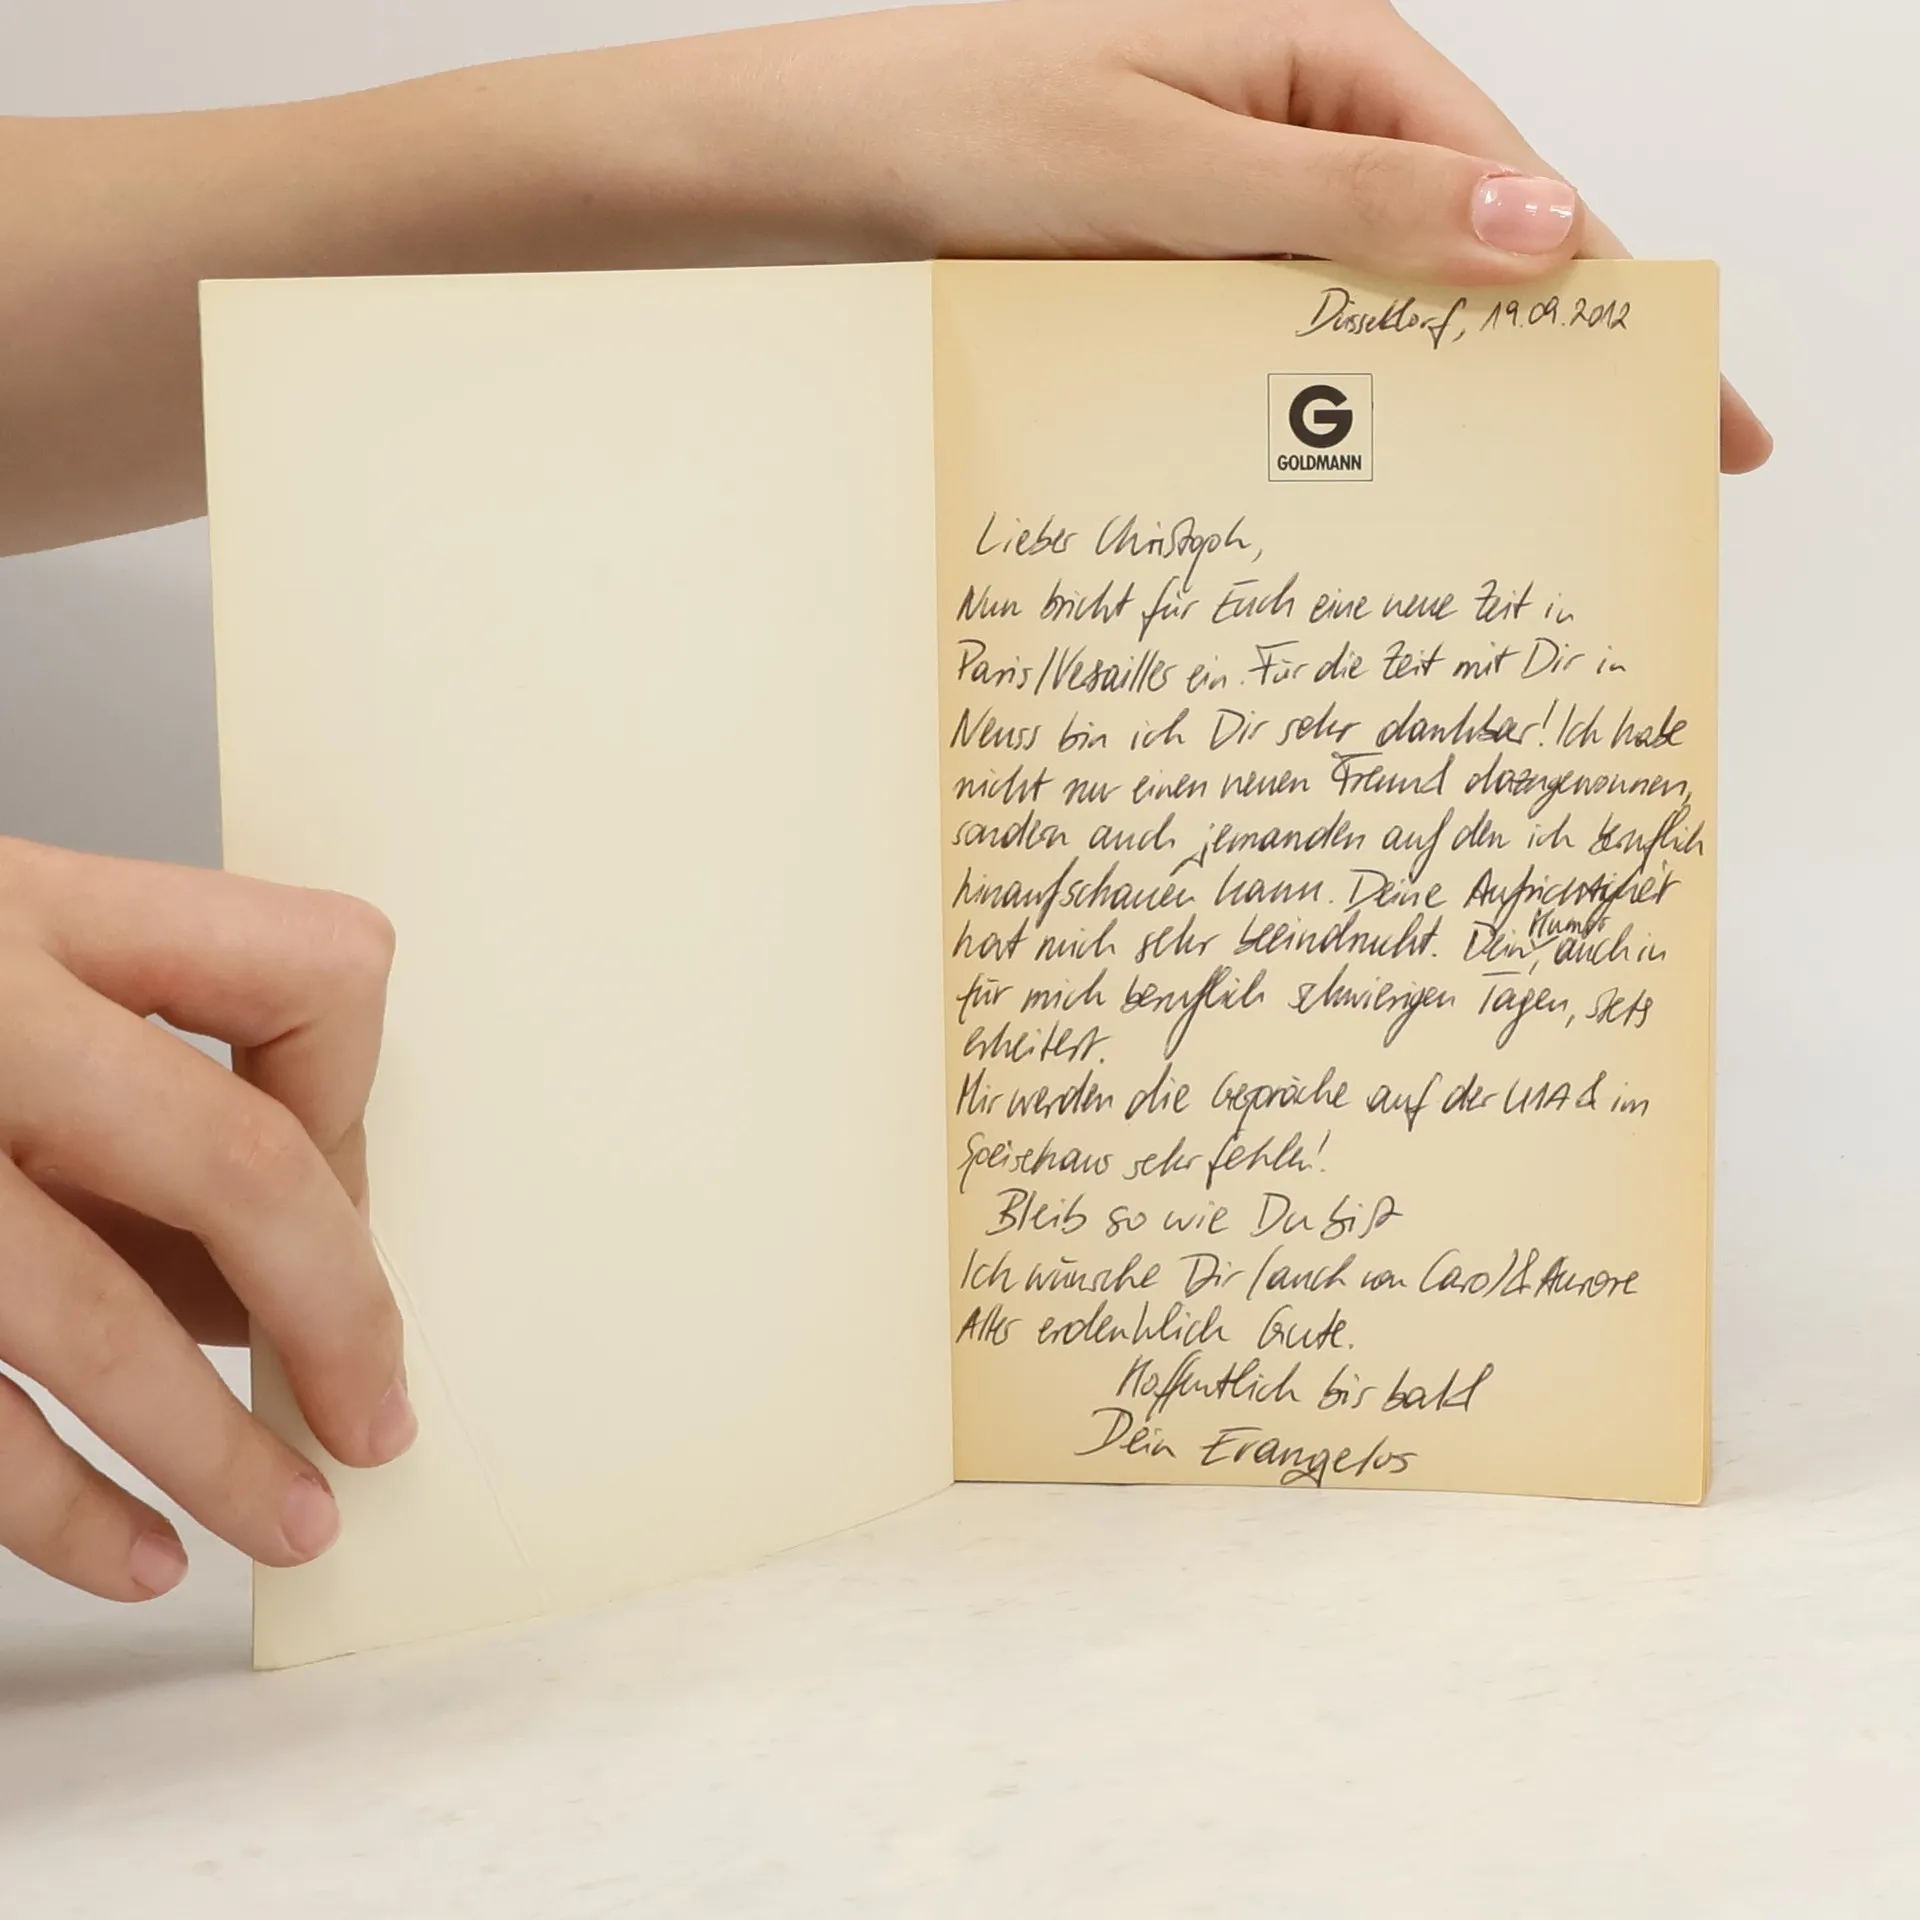 Düsseldorf, 19.09.2012
G
GOLDMANN
Lieber Christoph,
Nun bricht für Euch eine neue Zeit in
Paris/Versailles ein. Für die Zeit mit Dir in
Neuss bin ich Dir sehr dankbar! Ich habe
nicht nur einen neuen Freund dazugewonnen,
sondern auch jemanden auf den ich beruflich
hinaufschauen kann. Deine Aufrichtigkeit
hat mich sehr beeindruckt. Dein Humor, auch in
für mich beruflich schwierigen Tagen, stets
erheitert.
Mir werden die Gespräche auf der & im
Speisehaus sehr fehlen!
Bleib so wie Du bist
Ich wünsche Dir (auch von Carol & Aurore
Alles erdenklich Gute.
Hoffentlich bis bald
Dein Evangelos